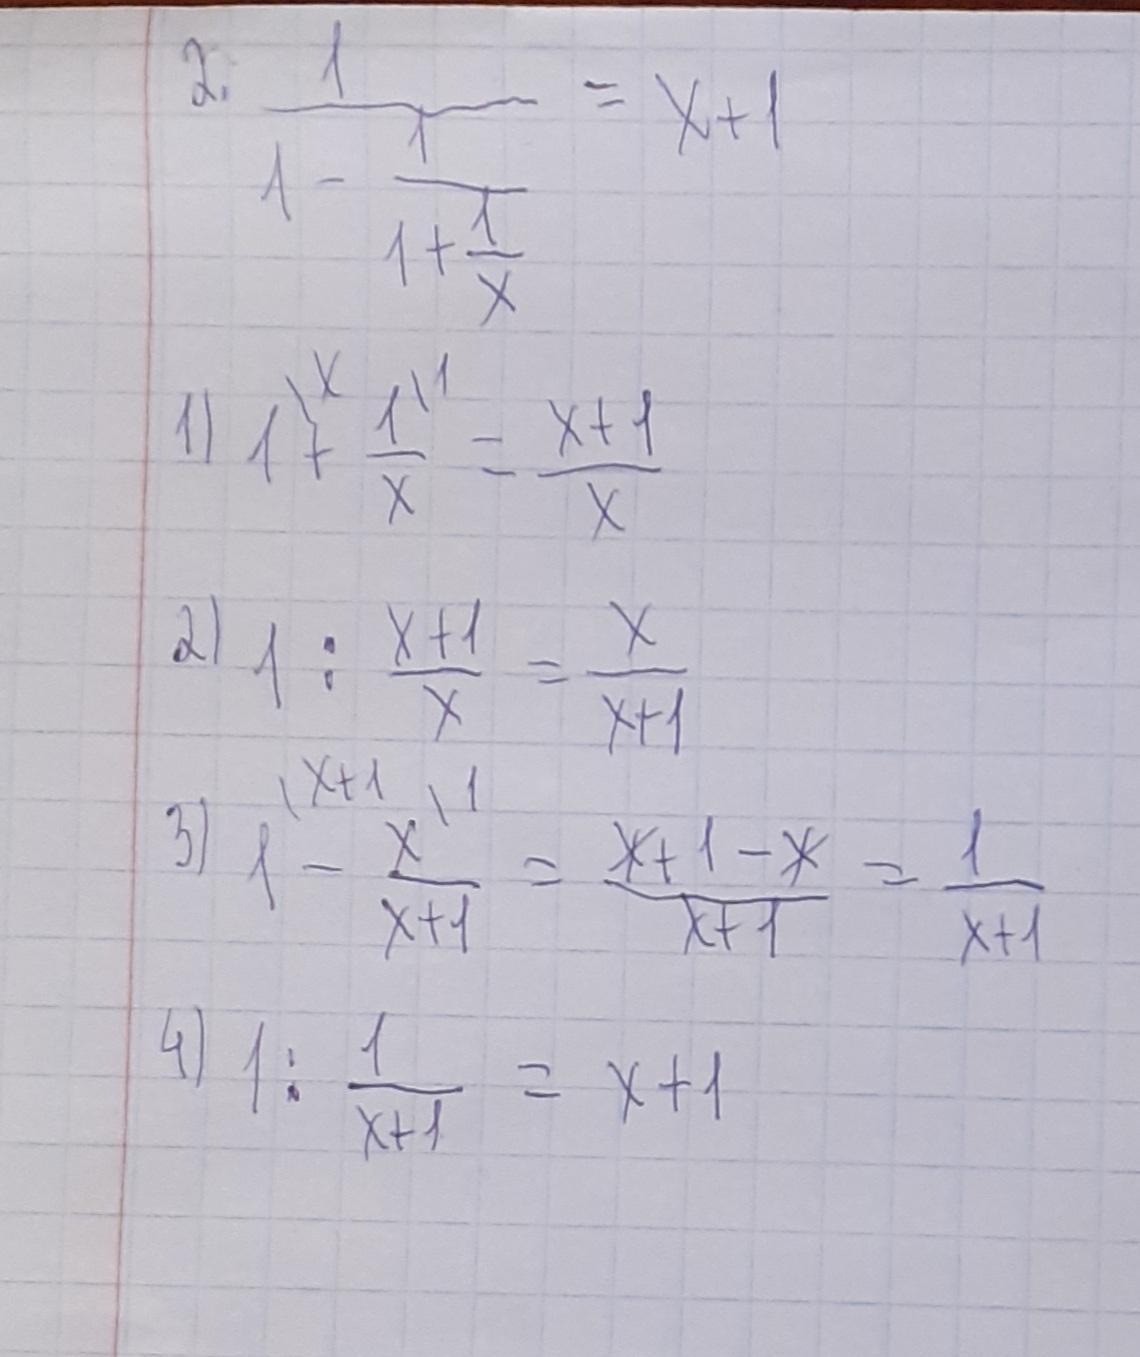 2. 1/(1 - 1/(1 + 1/x)) = x+1
1) 1\x + 1/x\1 = (x+1)/x
2) 1 : (x+1)/x = x/(x+1)
3) 1\x+1 - x/(x+1)\1 = (x+1-x)/(x+1) = 1/(x+1)
4) 1 : 1/(x+1) = x+1